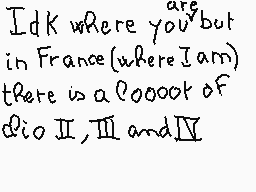 Idk where you are but
in France (where I am)
there is a loooot of
Dio II, III and IV